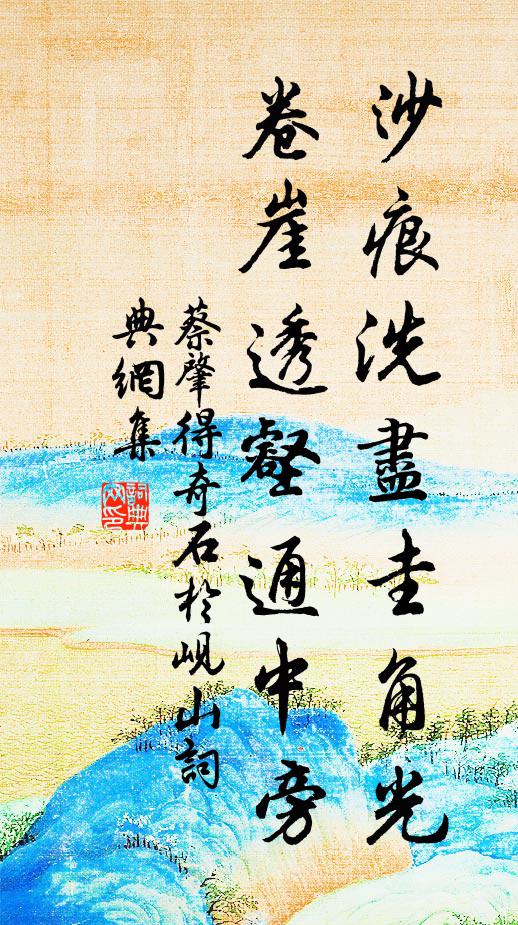 沙痕洗盡圭角光
卷崖透壑通中旁
蔡肇得奇石於峴山詞
典網集
詞典
网印